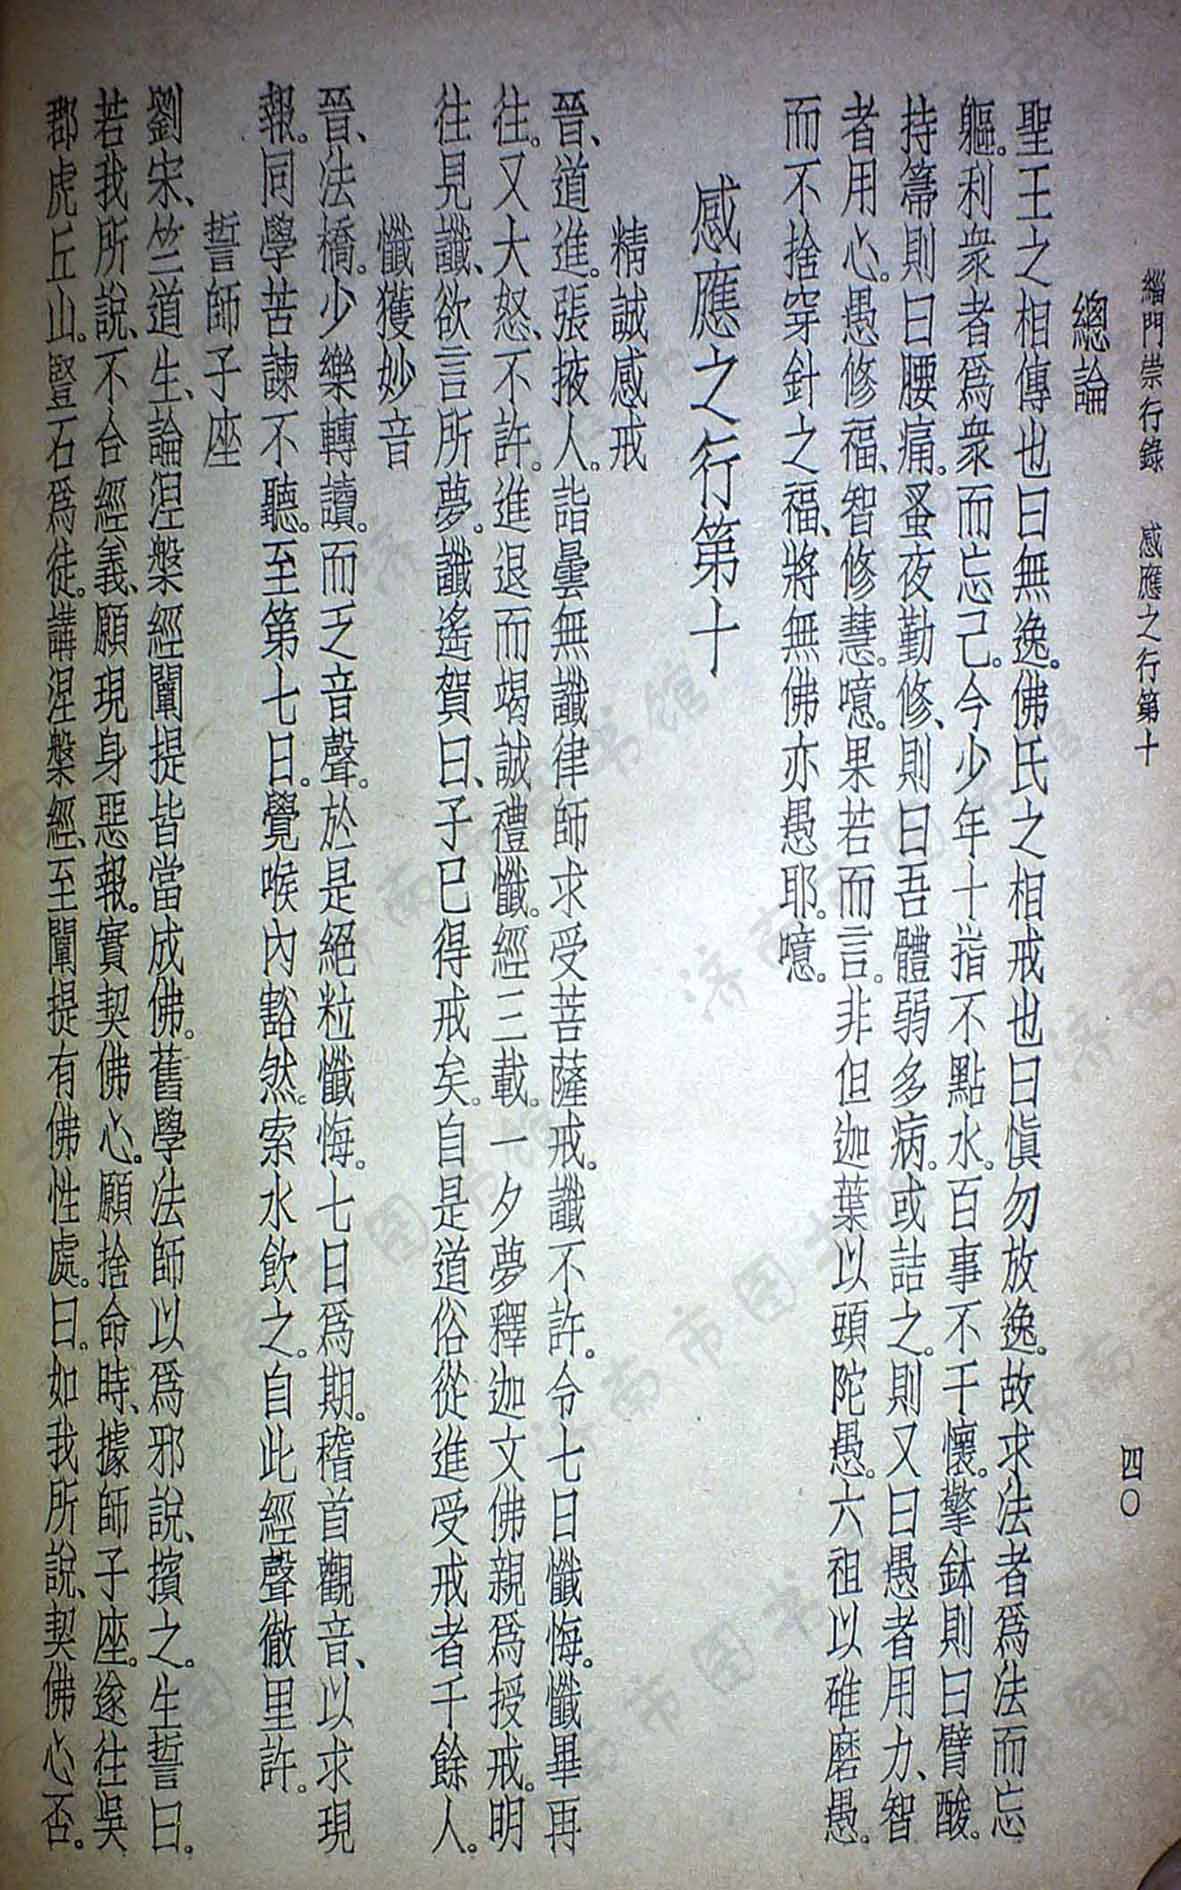 緇門崇行錄　感應之行第十　四〇
總論
聖王之相傳也曰無逸。佛氏之相戒也曰愼勿放逸。故求法者爲法而忘
軀。利衆者爲衆而忘己。今少年十指不點水。百事不干懷。擎鉢則曰臂酸。
持箒則曰腰痛。蚤夜勤修、則曰吾體弱多病。或詰之。則又曰愚者用力、智
者用心。愚修福、智修慧。噫。果若而言。非但迦葉以頭陀愚。六祖以碓磨愚。
而不捨穿針之福、將無佛亦愚耶。噫。
感應之行第十
精誠感戒
晉、道進。張掖人。詣曇無讖律師求受菩薩戒。讖不許。令七日懺悔。懺畢再
往。又大怒、不許。進退而竭誠禮懺。經三載。一夕夢釋迦文佛親爲授戒。明
往見讖、欲言所夢。讖遙賀曰、子已得戒矣。自是道俗從進受戒者千餘人。
懺獲妙音
晉、法橋。少樂轉讀。而乏音聲。於是絕粒懺悔。七日爲期。稽首觀音、以求現
報。同學苦諫不聽。至第七日。覺喉內豁然。索水飲之。自此經聲徹里許。
誓師子座
劉宋、竺道生、論涅槃經闡提皆當成佛。舊學法師以爲邪說、擯之。生誓曰。
若我所說、不合經義、願現身惡報。實契佛心。願捨命時、據師子座。遂往吳
郡虎丘山。豎石爲徒。講涅槃經、至闡提有佛性處。曰。如我所說、契佛心否。
济南市图书馆